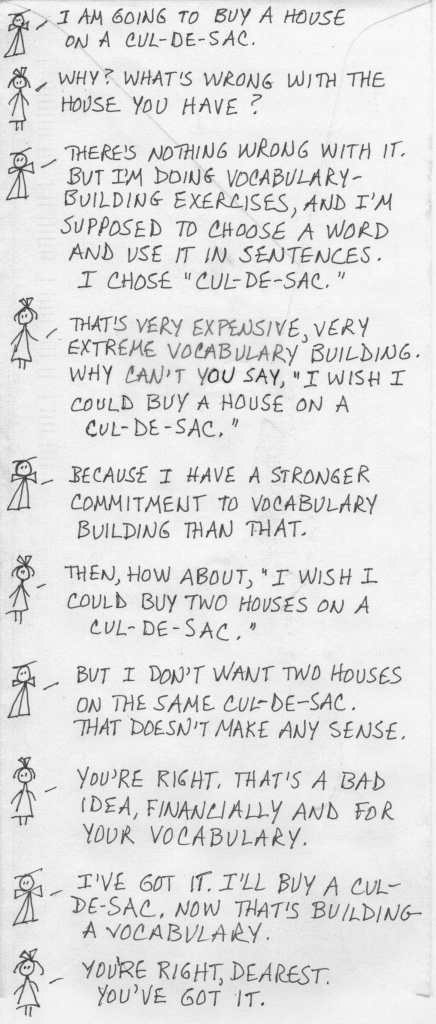 I AM GOING TO BUY A HOUSE
ON A CUL-DE-SAC.
WHY? WHAT'S WRONG WITH THE
HOUSE YOU HAVE?
THERE'S NOTHING WRONG WITH IT.
BUT I'M DOING VOCABULARY-
BUILDING EXERCISES, AND I'M
SUPPOSED TO CHOOSE A WORD
AND USE IT IN SENTENCES.
I CHOSE "CUL-DE-SAC."
THAT'S VERY EXPENSIVE, VERY
EXTREME VOCABULARY BUILDING.
WHY CAN'T YOU SAY, "I WISH I
COULD BUY A HOUSE ON A
CUL-DE-SAC."
BECAUSE I HAVE A STRONGER
COMMITMENT TO VOCABULARY
BUILDING THAN THAT.
THEN, HOW ABOUT, "I WISH I
COULD BUY TWO HOUSES ON A
CUL-DE-SAC."
BUT I DON'T WANT TWO HOUSES
ON THE SAME CUL-DE-SAC.
THAT DOESN'T MAKE ANY SENSE.
YOU'RE RIGHT. THAT'S A BAD
IDEA, FINANCIALLY AND FOR
YOUR VOCABULARY.
I'VE GOT IT. I'LL BUY A CUL-
DE-SAC. NOW THAT'S BUILDING
A VOCABULARY.
YOU'RE RIGHT, DEAREST.
YOU'VE GOT IT.